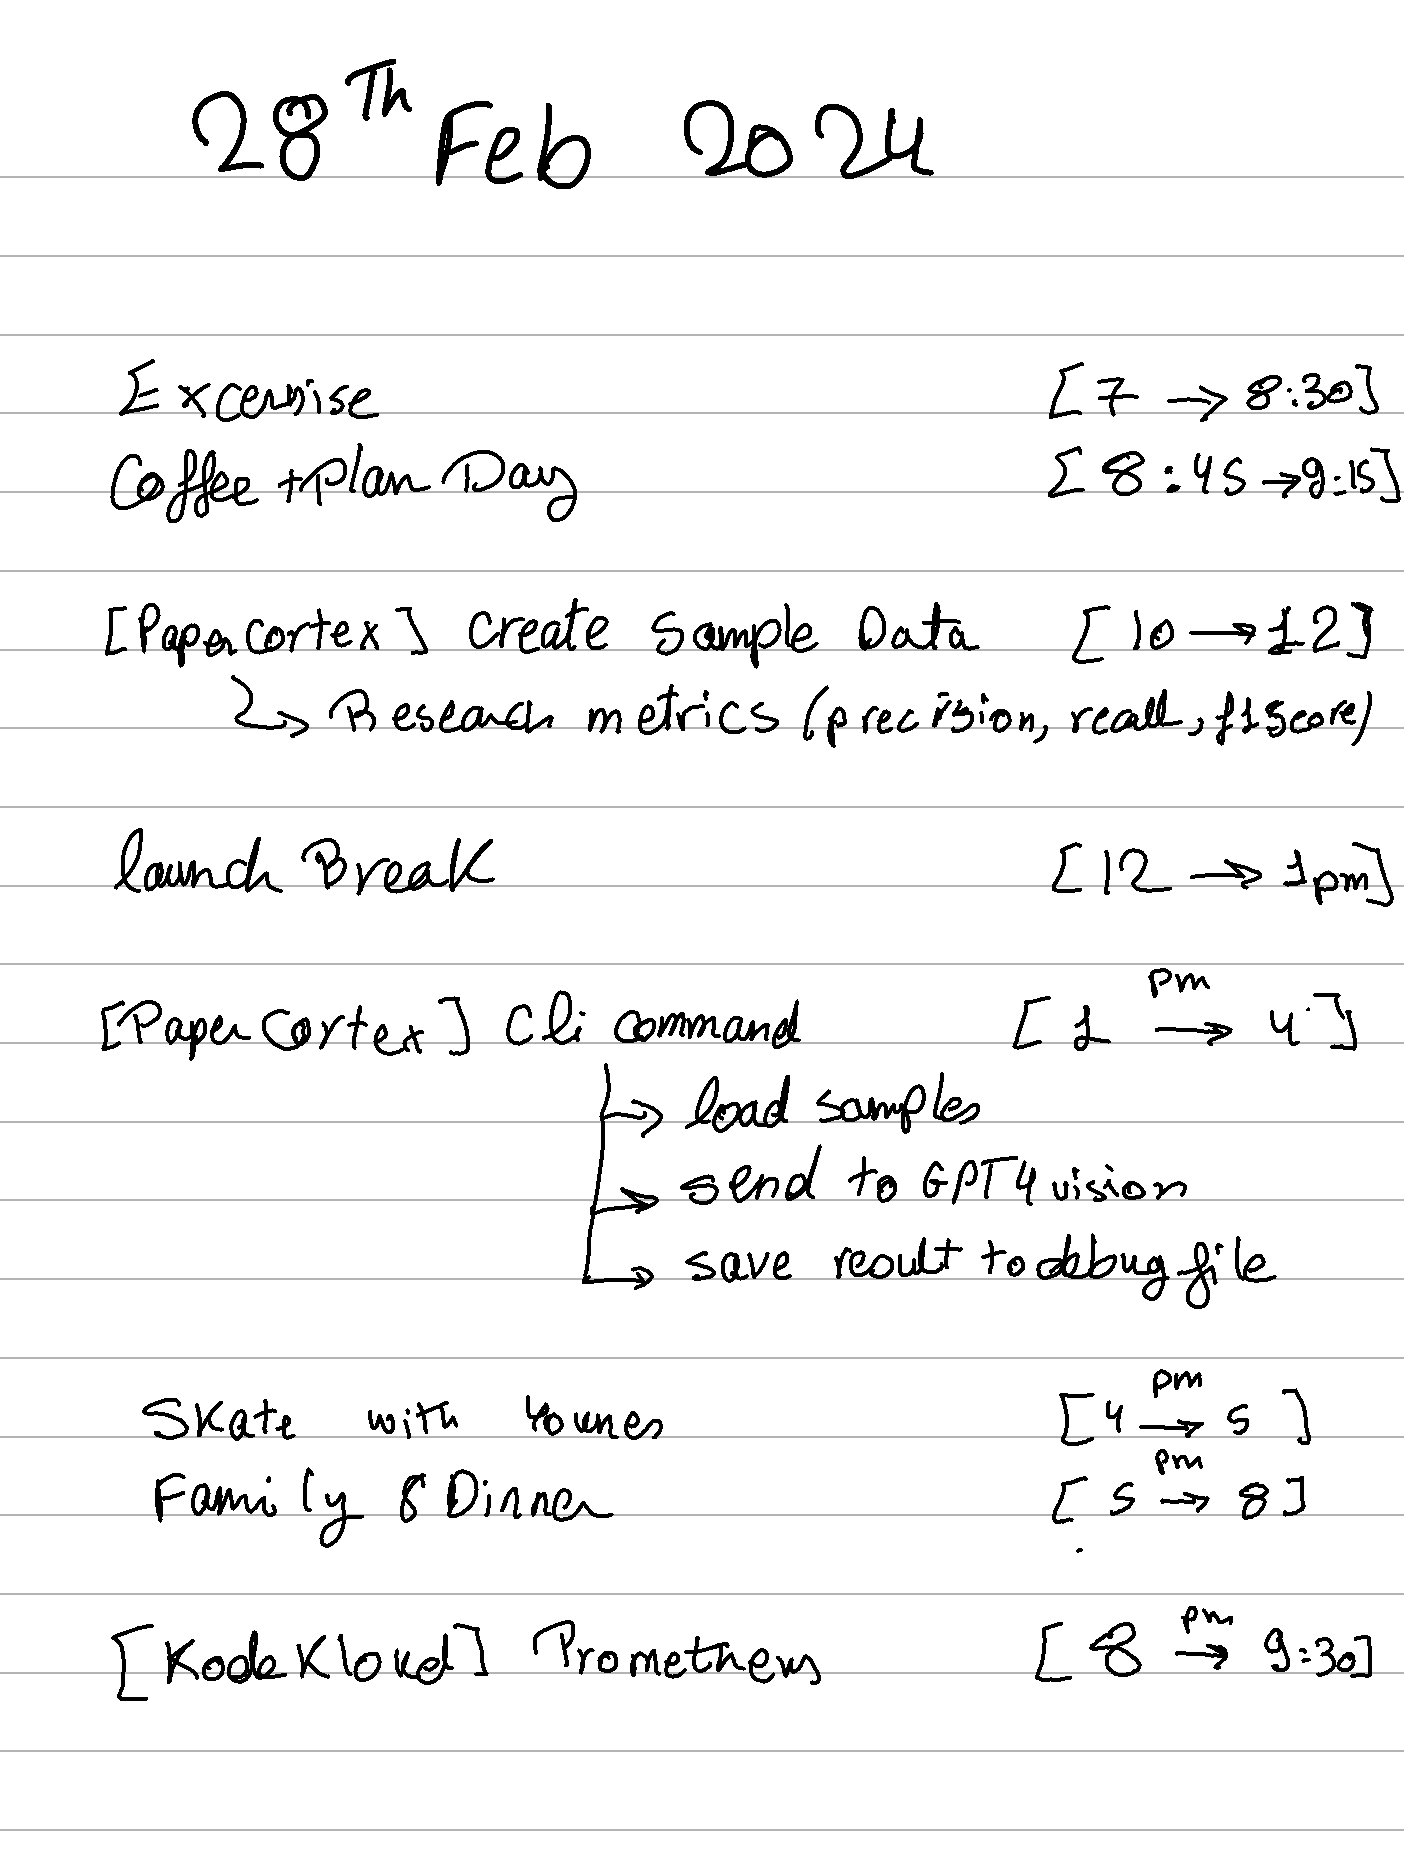 28Th Feb 2024
Excercise [7 → 8:30]
Coffee + Plan Day [8:45 → 9:15]
[Paper cortex] Create Sample Data [10 → 12]
↳ Research metrics (precision, recall, f1 score)
launch Break [12 → 1pm]
[Paper Cortex] Cli command [1 pm → 4]
→ load samples
→ send to GPT4 vision
→ save result to debug file
Skate with Younes [4 pm → 5]
Family & Dinner [5 pm → 8]
[KodeKloud] Prometheus [8 pm → 9:30]